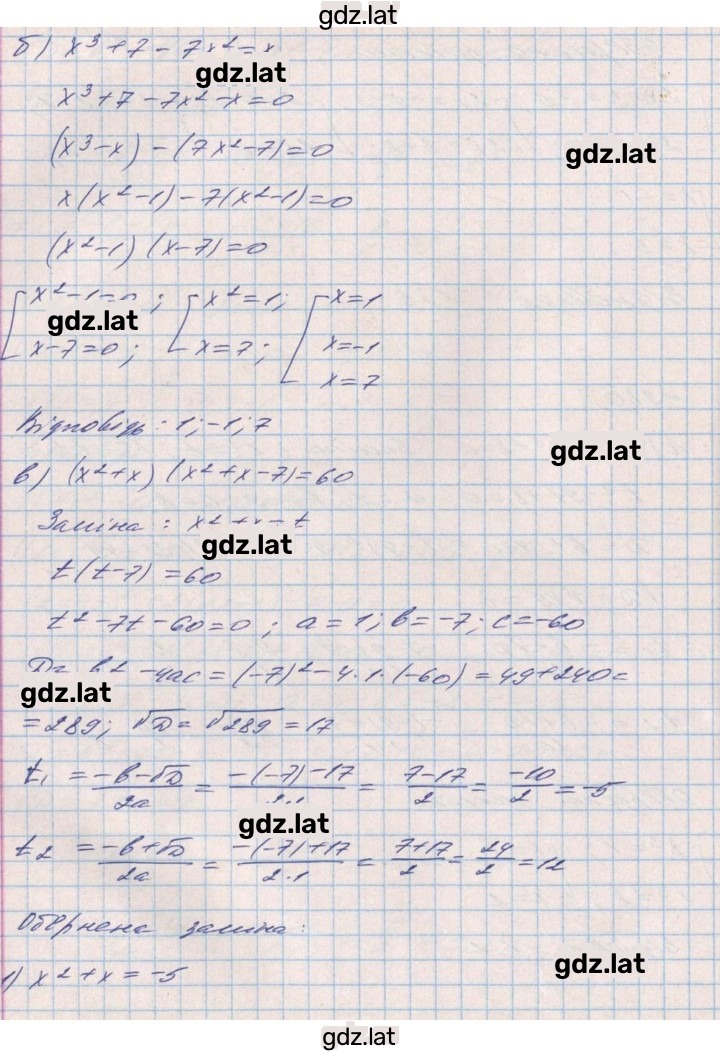 gdz.lat
б) x³+7-7x²=x
gdz.lat
x³+7-7x²-x=0
(x³-x)-(7x²-7)=0
gdz.lat
x(x²-1)-7(x²-1)=0
(x²-1)(x-7)=0
[x²-1=0; [x²=1; [x=1
gdz.lat
x-7=0; x=7; x=-1
x=7
Відповідь: 1;-1;7
gdz.lat
в) (x²+x)(x²+x-7)=60
Заміна: x²+x=t
gdz.lat
t(t-7)=60
t²-7t-60=0; a=1; b=-7; c=-60
D=b²-4ac=(-7)²-4·1·(-60)=49+240=
gdz.lat
=289; √D=√289=17
t₁ = (-b-√D)/2a = (-(-7)-17)/2·1 = (7-17)/2 = -10/2 = -5
gdz.lat
t₂ = (-b+√D)/2a = (-(-7)+17)/2·1 = (7+17)/2 = 24/2 = 12
Обернена заміна:
gdz.lat
1) x²+x=-5
gdz.lat